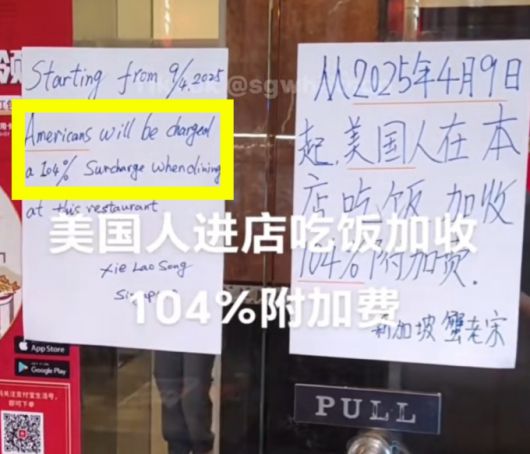 Starting from 9/4.2025
Americans will be charged
a 104% Surcharge when dining
at this restaurant
Xie Lao Song
从2025年4月9日
起,美国人在本
店吃饭 加收
104%附加费.
新加坡 蟹老宋
美国人进店吃饭加收
104%附加费
App Store
Google Play
即可下单
PULL